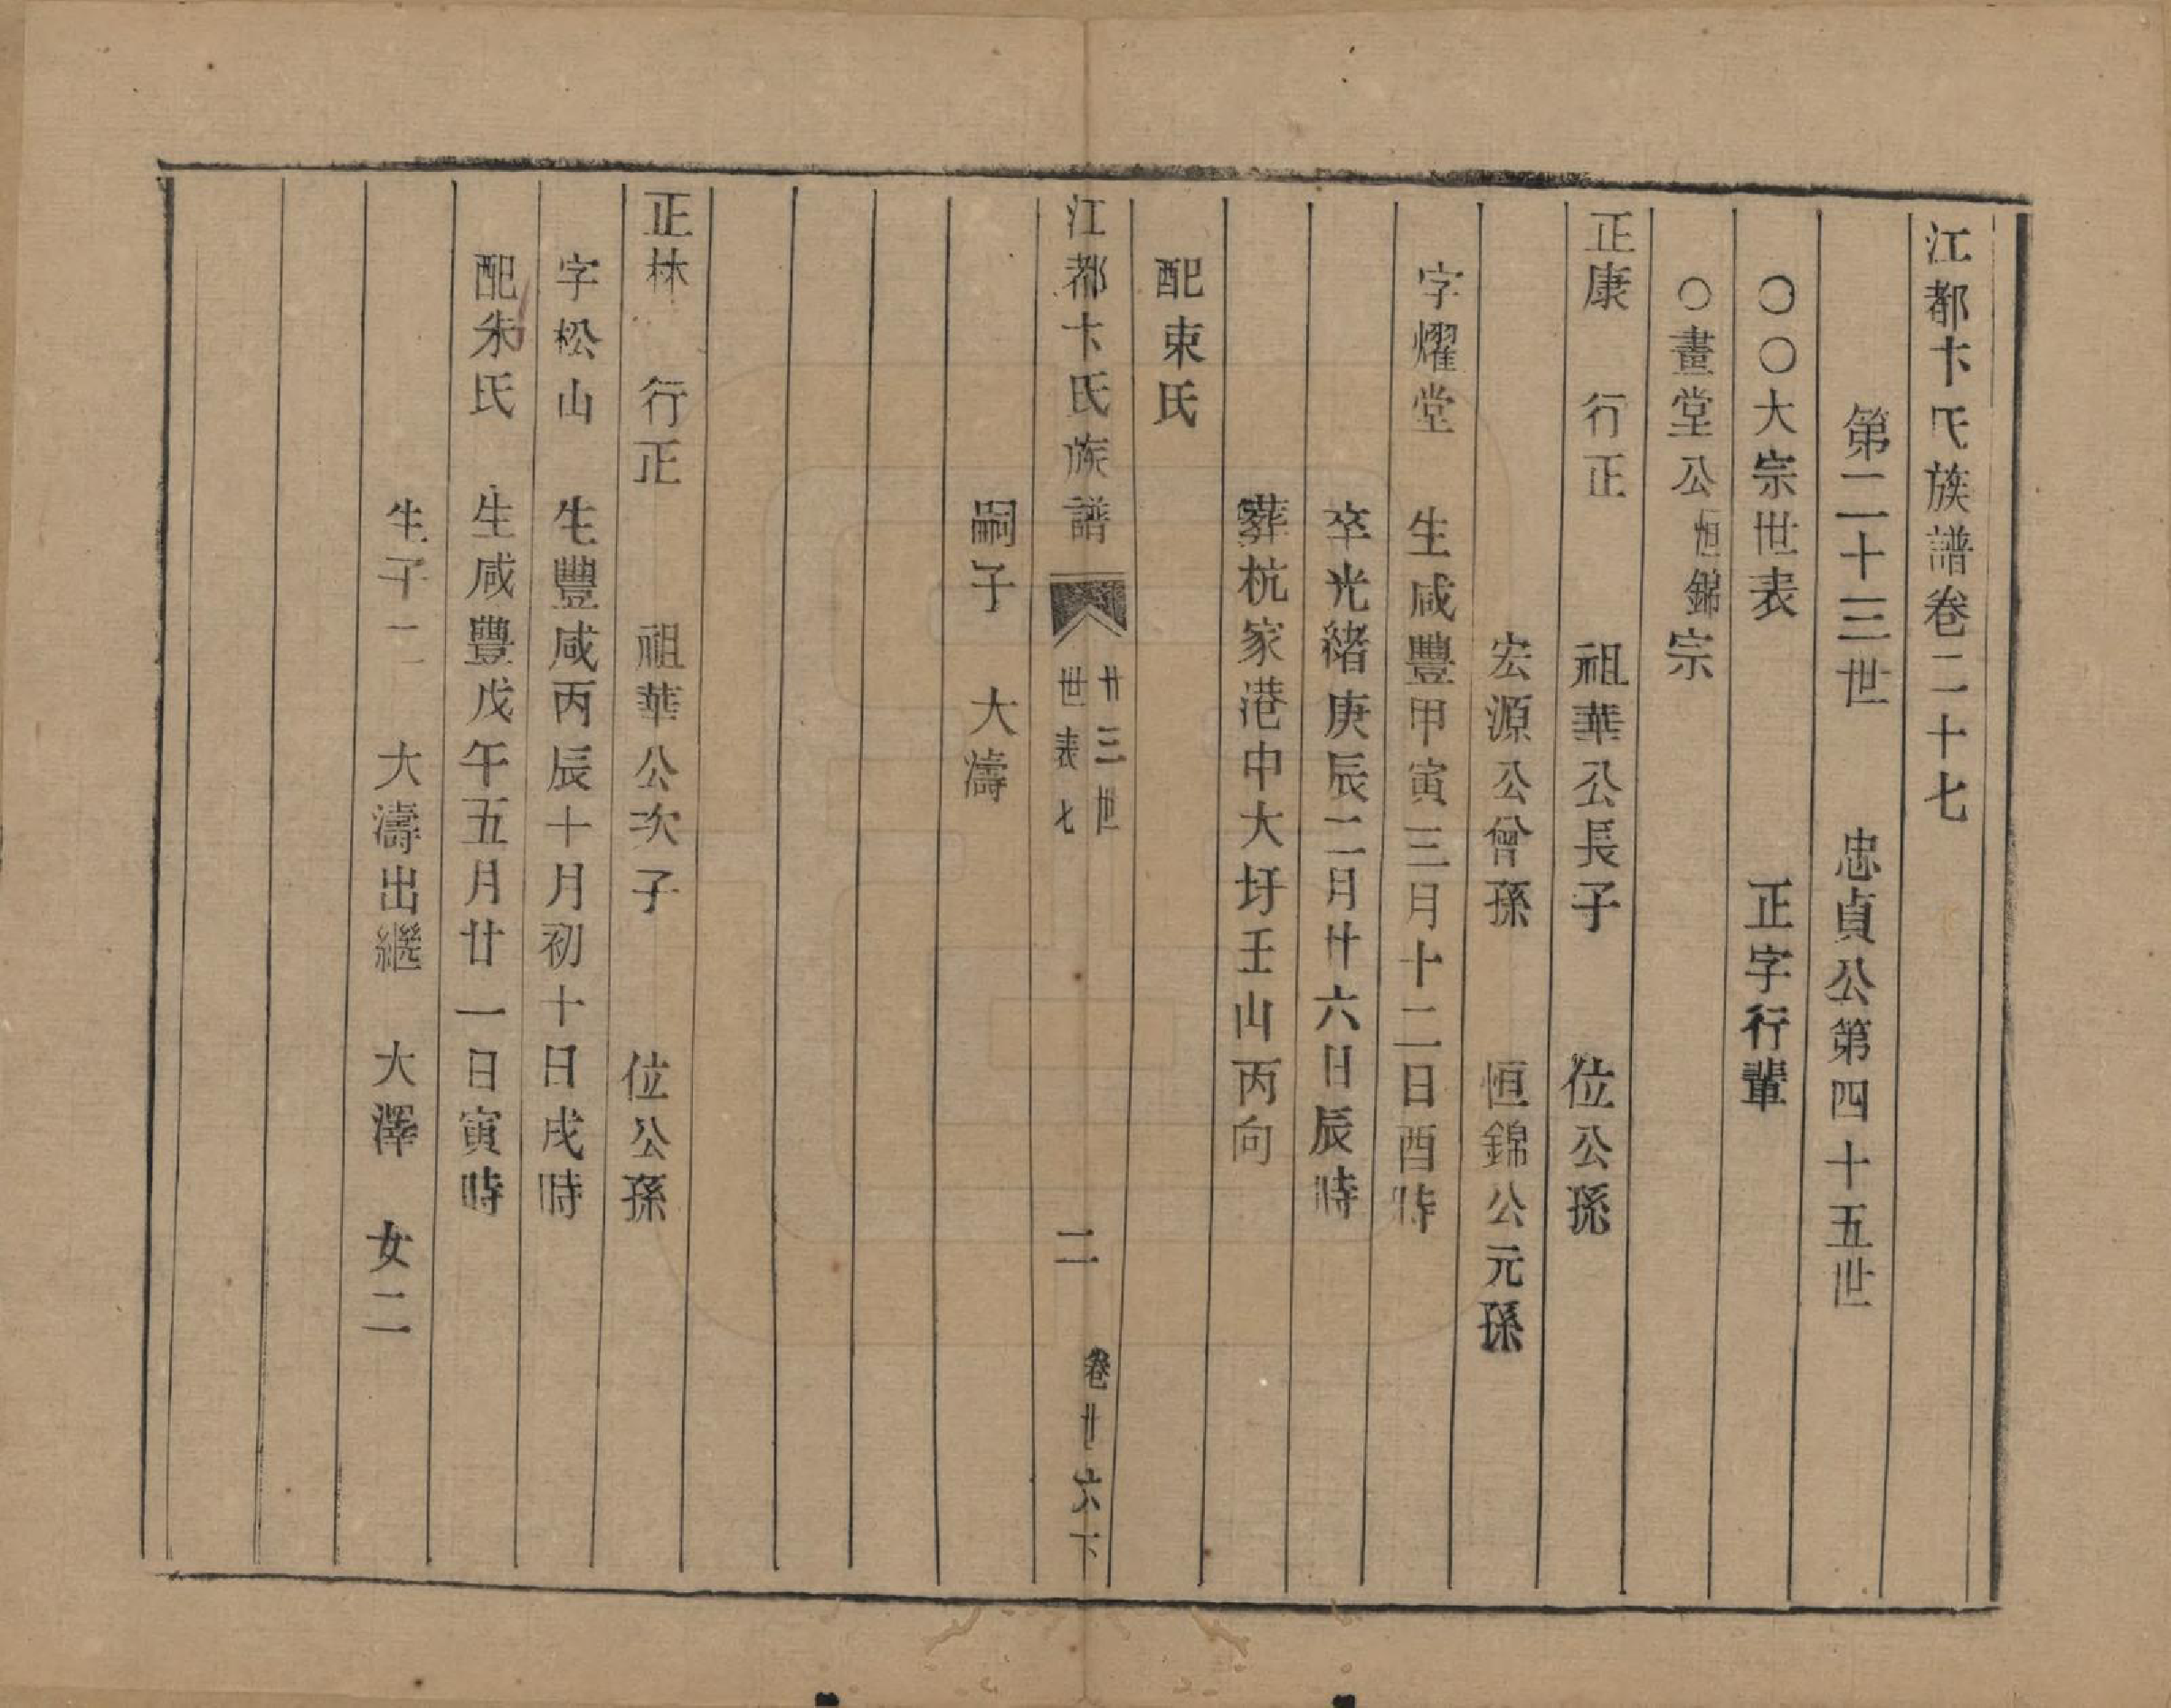 江都卞氏族譜卷二十七
第二十三世　忠貞公第四十五世
〇〇大宗世表　正字行輩
〇畫堂公恒錦宗
正康　行正　祖華公長子　位公孫
宏源公曾孫　恒錦公元孫
字燿堂　生咸豐甲寅三月十二日酉時
卒光緒庚辰二月廿六日辰時
葬杭家港中大圩壬山丙向
配束氏
江都卞氏族譜　廿三世世表七　二　卷廿六下
嗣子　大濤
正林　行正　祖華公次子　位公孫
字松山　生豐咸丙辰十月初十日戌時
配朱氏　生咸豐戊午五月廿一日寅時
生子二　大濤出繼　大澤　女二